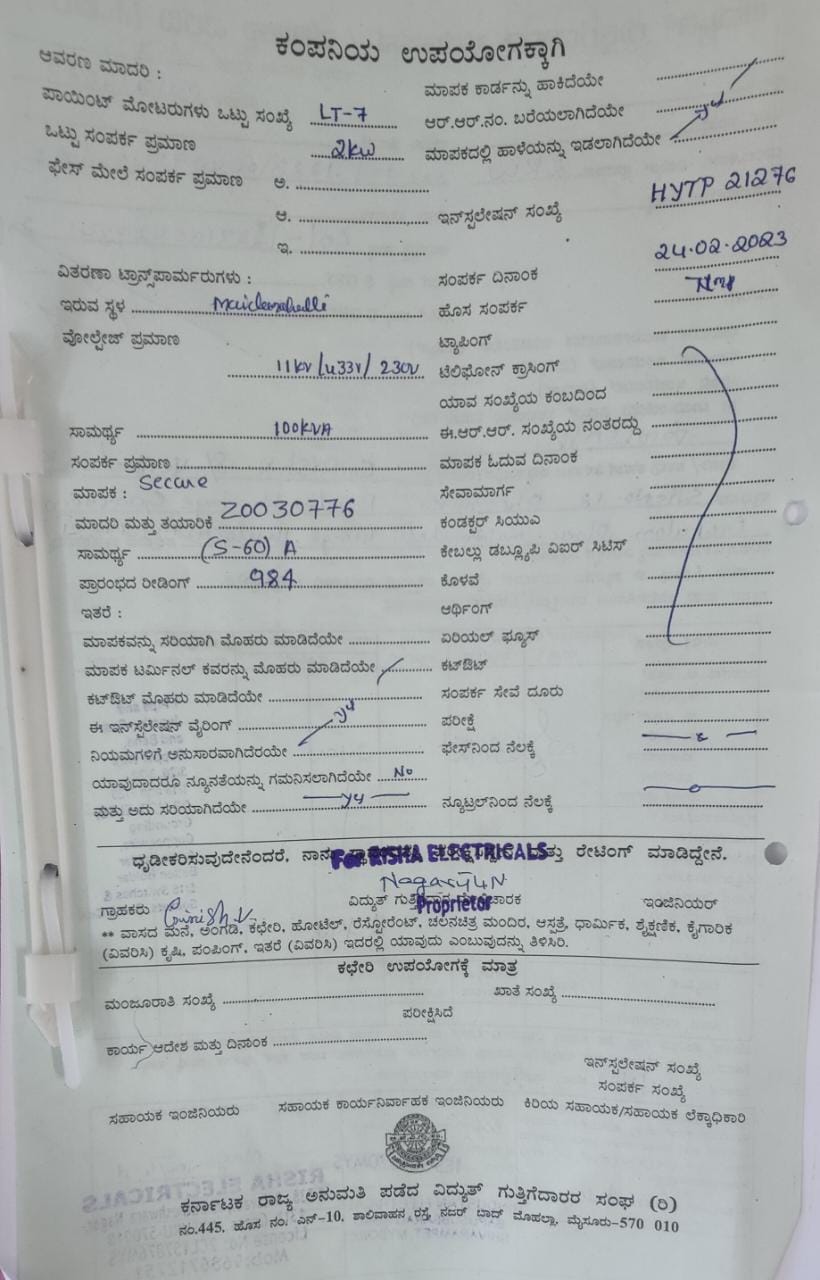 ಕಂಪನಿಯ ಉಪಯೋಗಕ್ಕಾಗಿ
ಆವರಣ ಮಾದರಿ :
ಮಾಪಕ ಕಾರ್ಡನ್ನು ಹಾಕಿದೆಯೇ
ಪಾಯಿಂಟ್ ಮೋಟರುಗಳು ಒಟ್ಟು ಸಂಖ್ಯೆ LT-7
ಆರ್.ಆರ್.ನಂ. ಬರೆಯಲಾಗಿದೆಯೇ
ಒಟ್ಟು ಸಂಪರ್ಕ ಪ್ರಮಾಣ 2kw
ಮಾಪಕದಲ್ಲಿ ಹಾಳೆಯನ್ನು ಇಡಲಾಗಿದೆಯೇ
ಫೇಸ್ ಮೇಲೆ ಸಂಪರ್ಕ ಪ್ರಮಾಣ ಅ.
ಆ.
ಇನ್‌ಸ್ಟಲೇಷನ್ ಸಂಖ್ಯೆ HYTP 21276
ಇ.
ವಿತರಣಾ ಟ್ರಾನ್ಸ್‌ಪಾರ್ಮರುಗಳು :
ಸಂಪರ್ಕ ದಿನಾಂಕ 24.02.2023
ಇರುವ ಸ್ಥಳ
ಹೊಸ ಸಂಪರ್ಕ
ವೋಲ್ಟೇಜ್ ಪ್ರಮಾಣ
ಟ್ಯಾಪಿಂಗ್
11kv/433v/230v
ಟೆಲಿಫೋನ್ ಕ್ರಾಸಿಂಗ್
ಯಾವ ಸಂಖ್ಯೆಯ ಕಂಬದಿಂದ
ಸಾಮರ್ಥ್ಯ 100kVA
ಈ.ಆರ್.ಆರ್. ಸಂಖ್ಯೆಯ ನಂತರದ್ದು
ಸಂಪರ್ಕ ಪ್ರಮಾಣ
ಮಾಪಕ ಓದುವ ದಿನಾಂಕ
ಮಾಪಕ : Secure
ಸೇವಾಮಾರ್ಗ
ಮಾದರಿ ಮತ್ತು ತಯಾರಿಕೆ 20030776
ಕಂಡಕ್ಟರ್ ಸಿಯುಎ
ಸಾಮರ್ಥ್ಯ (5-60) A
ಕೇಬಲ್ಲು ಡಬ್ಲ್ಯೂಪಿ ವಿಐರ್ ಸಿಟಿಸ್
ಪ್ರಾರಂಭದ ರೀಡಿಂಗ್ 984
ಕೊಳವೆ
ಇತರೆ :
ಆರ್ಥಿಂಗ್
ಮಾಪಕವನ್ನು ಸರಿಯಾಗಿ ಮೊಹರು ಮಾಡಿದೆಯೇ
ಏರಿಯಲ್ ಫ್ಯೂಸ್
ಮಾಪಕ ಟರ್ಮಿನಲ್ ಕವರನ್ನು ಮೊಹರು ಮಾಡಿದೆಯೇ
ಕಟ್‌ಔಟ್
ಕಟ್‌ಔಟ್ ಮೊಹರು ಮಾಡಿದೆಯೇ
ಸಂಪರ್ಕ ಸೇವೆ ದೂರು
ಈ ಇನ್‌ಸ್ಟೆಲೇಷನ್ ವೈರಿಂಗ್
ಪರೀಕ್ಷೆ
ನಿಯಮಗಳಿಗೆ ಅನುಸಾರವಾಗಿದೆರಯೇ
ಫೇಸ್‌ನಿಂದ ನೆಲಕ್ಕೆ
ಯಾವುದಾದರೂ ನ್ಯೂನತೆಯನ್ನು ಗಮನಿಸಲಾಗಿದೆಯೇ No
ಮತ್ತು ಅದು ಸರಿಯಾಗಿದೆಯೇ
ನ್ಯೂಟ್ರಲ್‌ನಿಂದ ನೆಲಕ್ಕೆ
ಧೃಡೀಕರಿಸುವುದೇನೆಂದರೆ, ನಾನು ಮತ್ತು ರೇಟಿಂಗ್ ಮಾಡಿದ್ದೇನೆ.
For RISHA ELECTRICALS
Nagarjun
ಗ್ರಾಹಕರು Girish.V.
ವಿದ್ಯುತ್
Proprietor
ಇಂಜಿನಿಯರ್
** ವಾಸದ ಮನೆ, ಅಂಗಡಿ, ಕಛೇರಿ, ಹೋಟೆಲ್, ರೆಸ್ಟೋರೆಂಟ್, ಚಲನಚಿತ್ರ ಮಂದಿರ, ಆಸ್ಪತ್ರೆ, ಧಾರ್ಮಿಕ, ಶೈಕ್ಷಣಿಕ, ಕೈಗಾರಿಕ
(ವಿವರಿಸಿ) ಕೃಷಿ, ಪಂಪಿಂಗ್, ಇತರೆ (ವಿವರಿಸಿ) ಇದರಲ್ಲಿ ಯಾವುದು ಎಂಬುವುದನ್ನು ತಿಳಿಸಿರಿ.
ಕಛೇರಿ ಉಪಯೋಗಕ್ಕೆ ಮಾತ್ರ
ಮಂಜೂರಾತಿ ಸಂಖ್ಯೆ
ಖಾತೆ ಸಂಖ್ಯೆ
ಪರೀಕ್ಷಿಸಿದೆ
ಕಾರ್ಯ ಆದೇಶ ಮತ್ತು ದಿನಾಂಕ
ಇನ್‌ಸ್ಟಲೇಷನ್ ಸಂಖ್ಯೆ
ಸಂಪರ್ಕ ಸಂಖ್ಯೆ
ಸಹಾಯಕ ಇಂಜಿನಿಯರು ಸಹಾಯಕ ಕಾರ್ಯನಿರ್ವಾಹಕ ಇಂಜಿನಿಯರು ಕಿರಿಯ ಸಹಾಯಕ/ಸಹಾಯಕ ಲೆಕ್ಕಾಧಿಕಾರಿ
ಕರ್ನಾಟಕ ರಾಜ್ಯ ಅನುಮತಿ ಪಡೆದ ವಿದ್ಯುತ್ ಗುತ್ತಿಗೆದಾರರ ಸಂಘ (ರಿ)
ನಂ.445, ಹೊಸ ನಂ. ಎನ್-10, ಶಾಲಿವಾಹನ ರಸ್ತೆ, ನಜರ್ ಬಾದ್ ಮೊಹಲ್ಲಾ, ಮೈಸೂರು-570 010